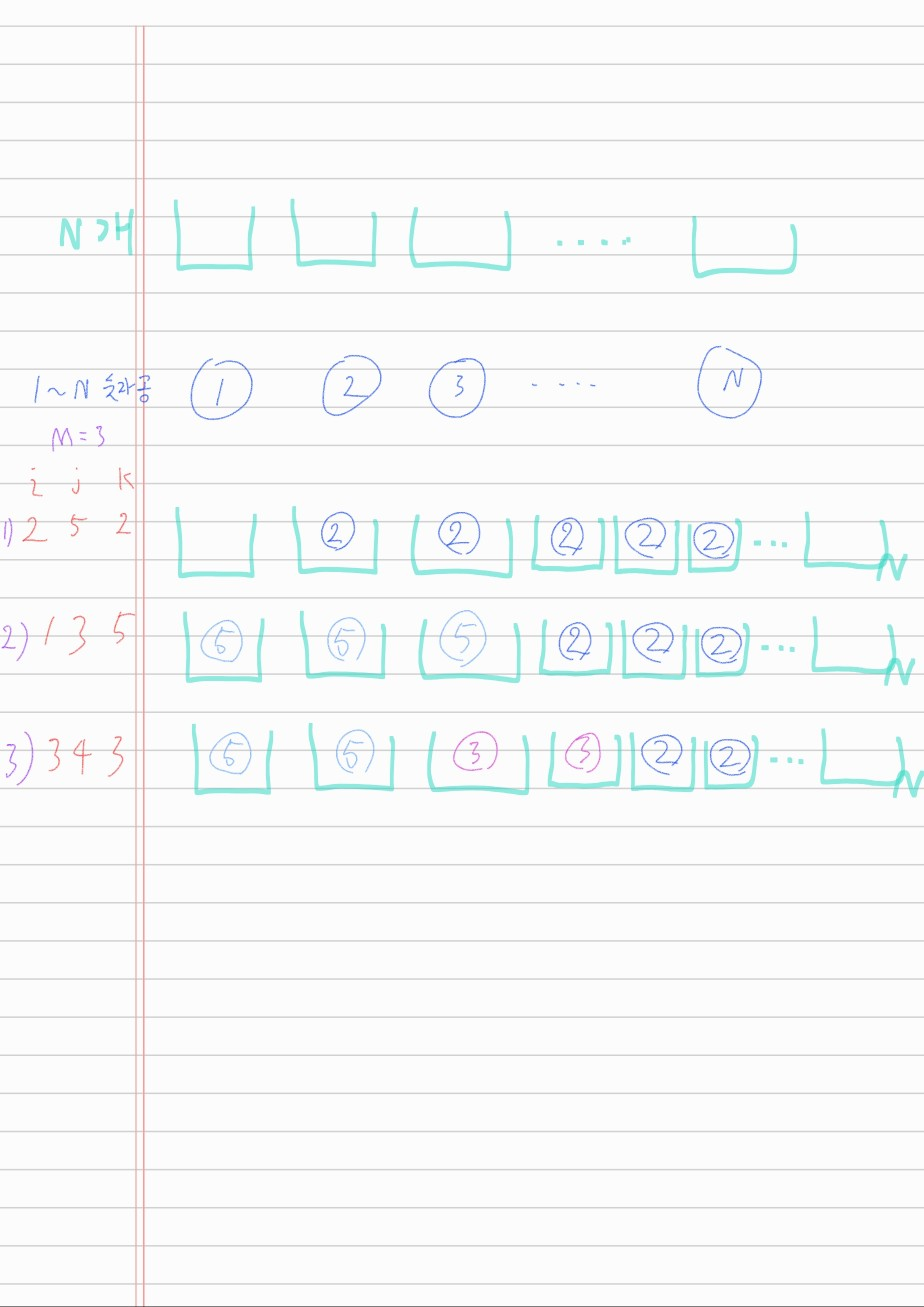 N개 ....
1~N 숫자공 1 2 3 .... N
M=3
i j k
1) 2 5 2 2 2 2 2 2 ... N
2) 1 3 5 5 5 5 2 2 2 ... N
3) 3 4 3 5 5 3 3 2 2 ... N